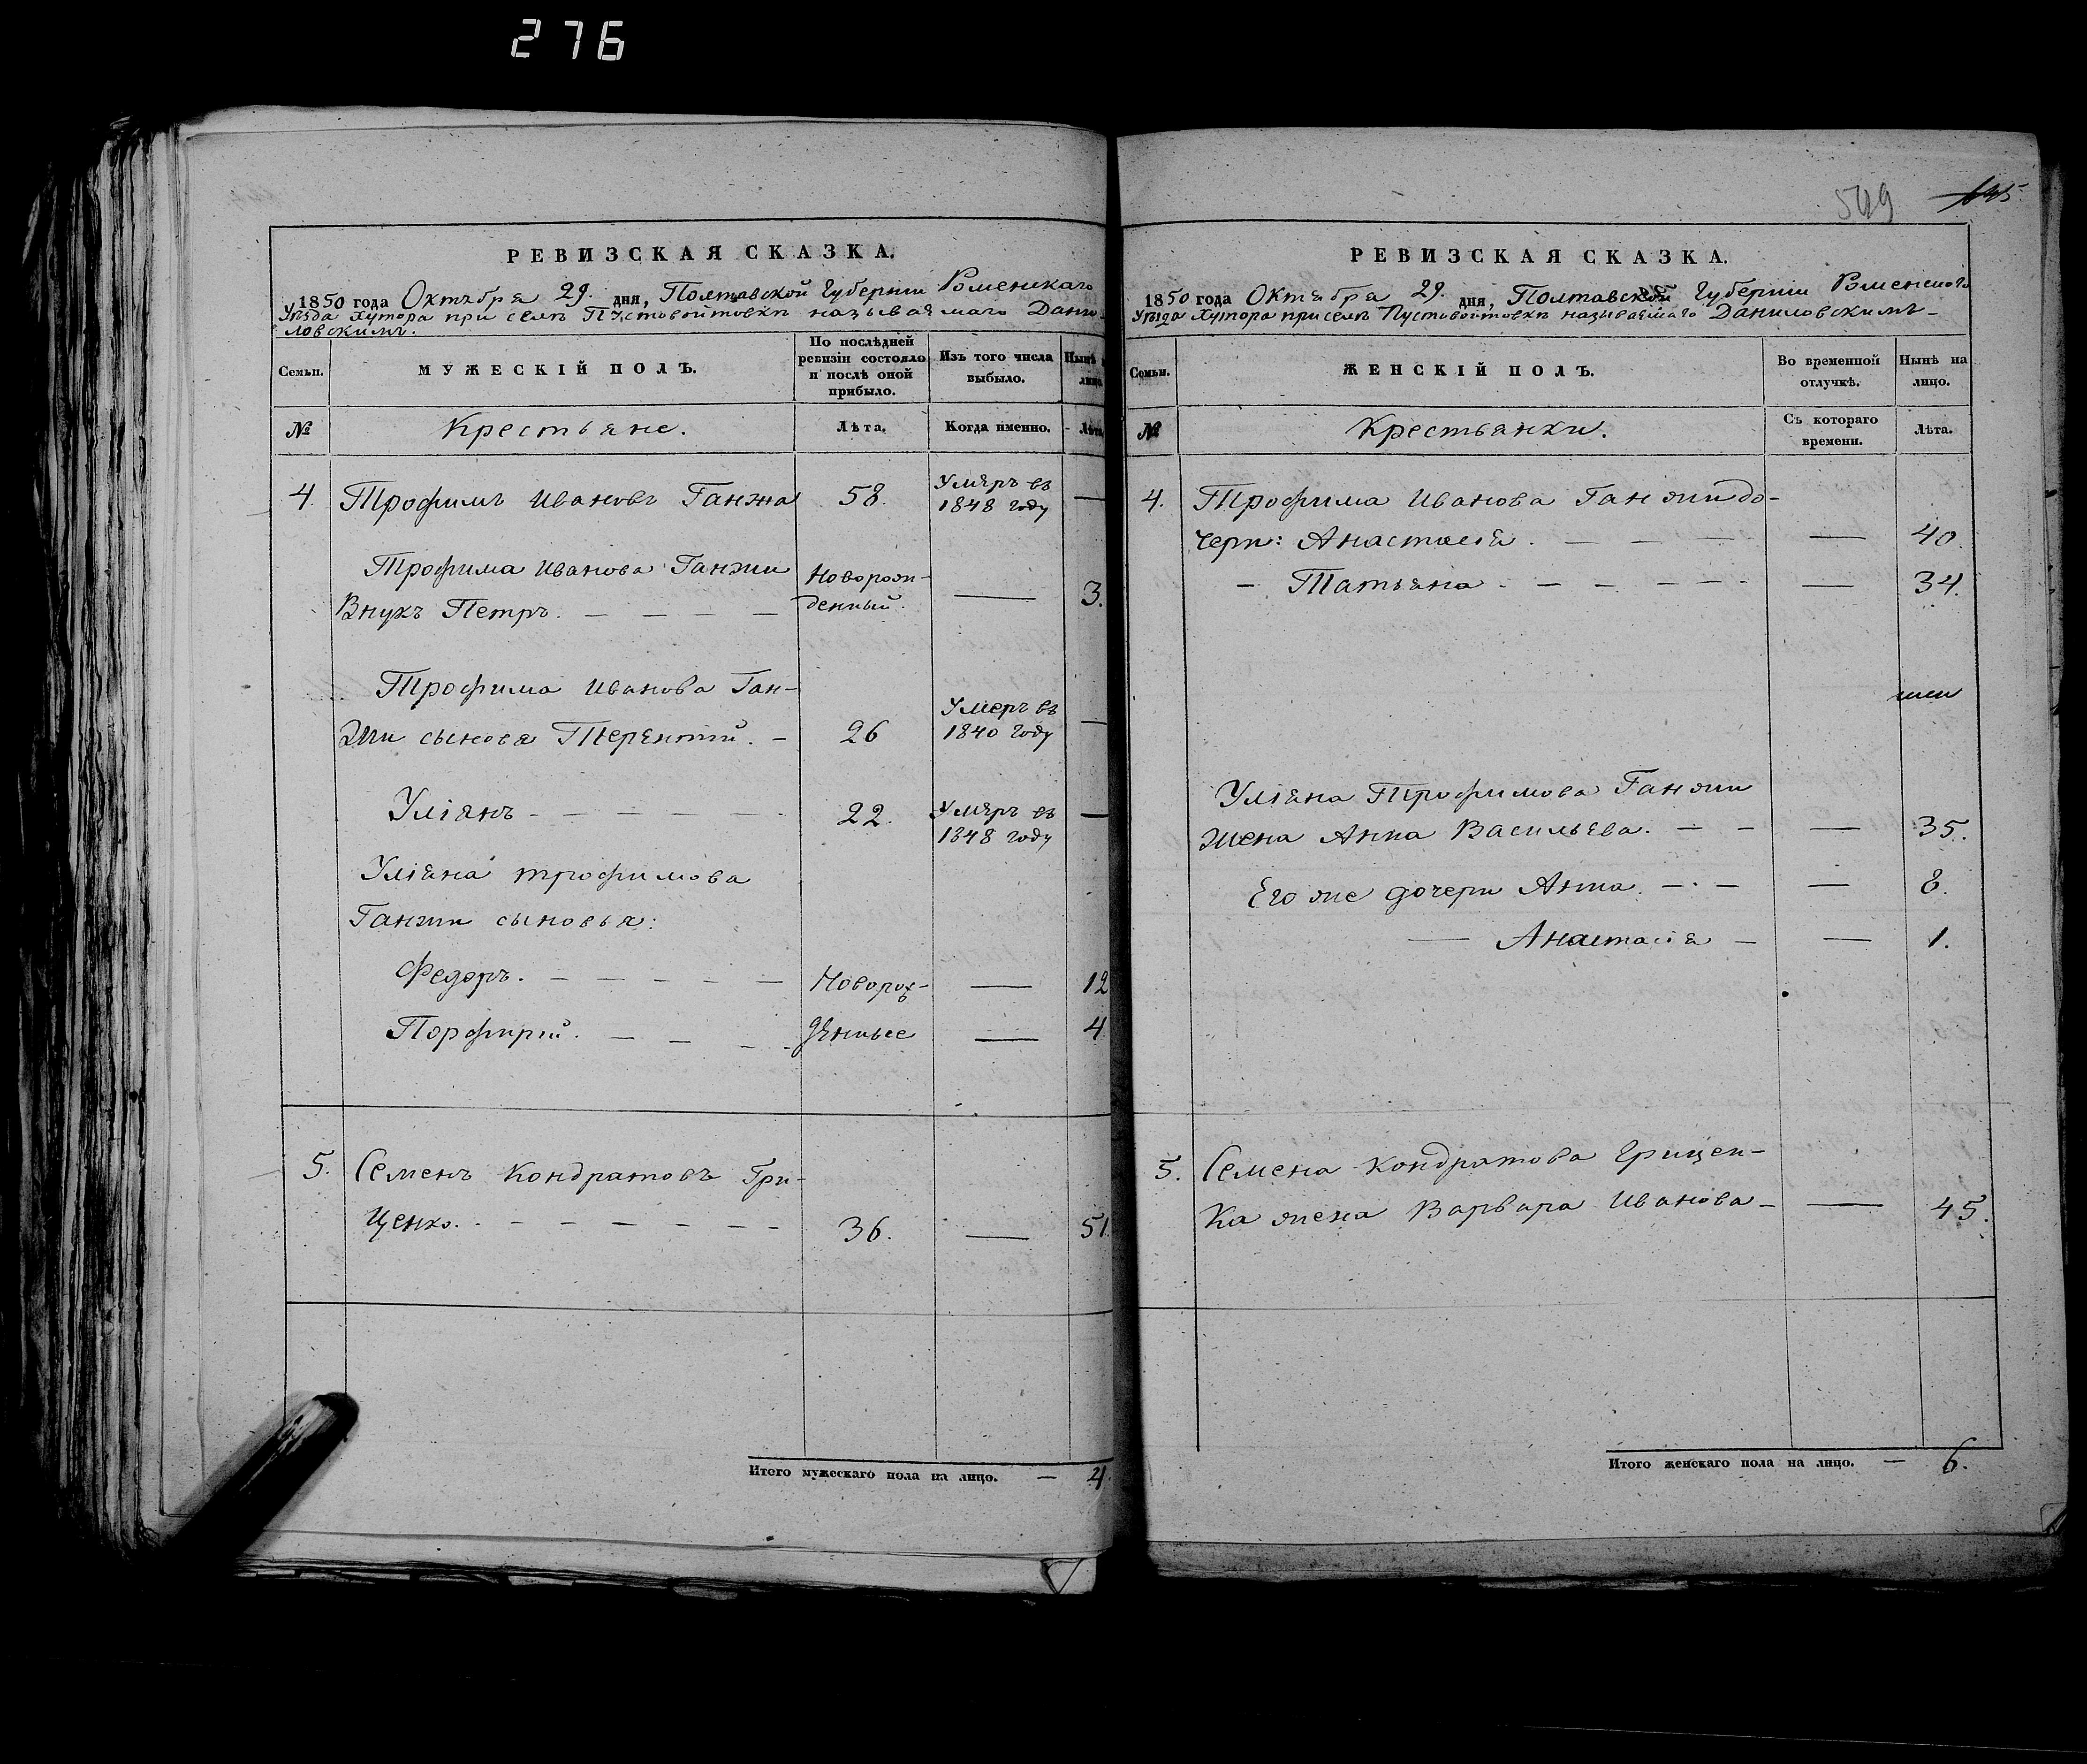 276
РЕВИЗСКАЯ СКАЗКА.
1850 года Октября 29. дня, Полтавской Губернии Роменскаго
Уѣзда Хутора при селѣ Пустовойтовкѣ называемаго Дани-
ловскимъ.
Семьи.
МУЖЕСКІЙ ПОЛЪ.
По послѣдней ревизіи состояло и послѣ оной прибыло.
Изъ того числа выбыло.
Нынѣ лицо.
№
Крестьяне.
Лѣта.
Когда именно.
Лѣта
4. Трофимъ Ивановъ Ганжа 58. Умеръ въ 1848 году —
Трофима Иванова Ганжи
Внукъ Петръ. — — — — Новорож-денный. — 3.
Трофима Иванова Ган-
жи сыновья Терентий. — 26 Умеръ въ 1840 году —
Уліянъ — — — — — 22. Умеръ въ 1848 году —
Уліяна трофимова
Ганжи сыновья:
Федоръ. — — — — — Новорож- — 12
Порфирій. — — — денные — 4
5. Семенъ Кондратовъ Гри-
ценко. — — — — — — 36. — 51.
Итого мужескаго пола на лицо. — 4
549 645
РЕВИЗСКАЯ СКАЗКА.
1850 года Октября 29. дня, Полтавской Губерніи Роменскаго
Уѣзда Хутора при селѣ Пустовойтовкѣ называемаго Даниловскимъ —
Семьи.
ЖЕНСКІЙ ПОЛЪ.
Во временной отлучкѣ.
Нынѣ на лицо.
№
Крестьянки.
Съ котораго времени.
Лѣта.
4. Трофима Иванова Ганжи до-
чери: Анастасія. — — — — 40.
— Татьяна — — — — — — 34.
Уліяна Трофимова Ганжи
жена Анна Васильева. — — — 35.
Его же дочери Анна. — — — 8.
— Анастасія — — 1.
5. Семена Кондратова Грицен-
ка жена Варвара Иванова — — 45.
Итого женскаго пола на лицо. — 6.